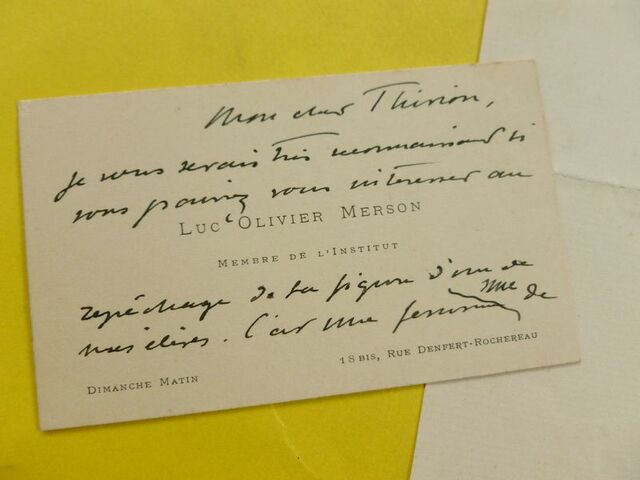 Mon cher Thirion,
je vous serais très reconnaissant si
vous pouviez vous intéresser au
LUC OLIVIER MERSON
MEMBRE DE L'INSTITUT
repêchage de la figure d'une de
mes élèves. C'est une femme
Mme de
DIMANCHE MATIN
18 BIS, RUE DENFERT-ROCHEREAU